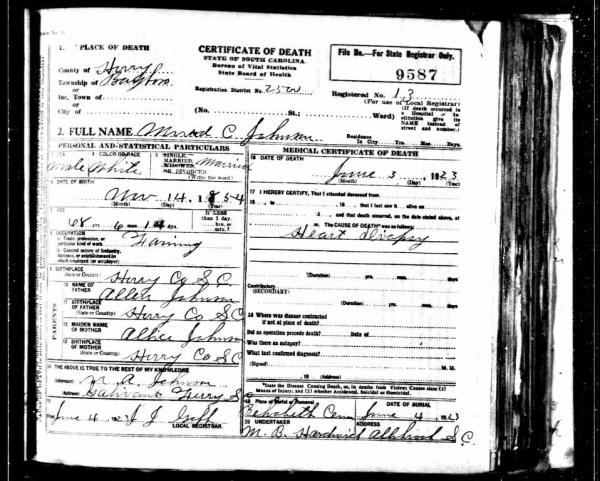 1. PLACE OF DEATH
County of Horry
Township of
or
Inc. Town of
or
City of
CERTIFICATE OF DEATH
STATE OF SOUTH CAROLINA
Bureau of Vital Statistics
State Board of Health
Registration District No. 2500
(No. St.; Ward)
File No.—For State Registrar Only.
9587
Registered No. 13
(For use of Local Registrar)
(If death occurred in a Hospital or Institution give its NAME instead of street and number.)
2. FULL NAME C. Johnson
Residence
In City Yrs. Mos. Days.
PERSONAL AND STATISTICAL PARTICULARS
4 COLOR OR RACE
5 SINGLE, MARRIED, WIDOWED, OR DIVORCED.
(Write the word)
Male White Married
6 DATE OF BIRTH
Nov 14, 1854
(Month) (Day) (Year)
7 AGE
If LESS than 1 day, hrs. or min.?
68 yrs. 6 mos.
8 OCCUPATION
a. Trade, profession, or particular kind of work.
Farming
b. General nature of industry, business, or establishment in which employed (or employer)
9 BIRTHPLACE
(State or Country) Horry Co S.C.
10 NAME OF FATHER Allen Johnson
PARENTS
11 BIRTHPLACE OF FATHER
(State or Country) Horry Co S.C
12 MAIDEN NAME OF MOTHER Johnson
13 BIRTHPLACE OF MOTHER
(State or Country) Horry Co S.C
14 THE ABOVE IS TRUE TO THE BEST OF MY KNOWLEDGE
Informant Johnson
Address Ferry S.C
15
Filed June 4 1923 J J
LOCAL REGISTRAR.
MEDICAL CERTIFICATE OF DEATH
16 DATE OF DEATH
June 3, 1923
(Month) (Day) (Year)
17 I HEREBY CERTIFY, That I attended deceased from
, 19 , to , 19 , that I saw h alive on
, and that death occurred, on the date stated above, at
m. The CAUSE OF DEATH* was as follows:
Heart Dropsy
(Duration) yrs. mos. days
Contributory
(SECONDARY)
(Duration) yrs. mos. days
18 Where was disease contracted
if not at place of death?
Did an operation precede death? Date of
Was there an autopsy?
What test confirmed diagnosis?
(Signed) M. D.
, 19 (Address)
*State the Disease Causing Death, or, in deaths from Violent Causes state (1) Means of Injury; and (2) whether Accidental, Suicidal or Homicidal.
19 Place of Burial or Removal DATE OF BURIAL
Cem June 4, 1923
20 UNDERTAKER ADDRESS
M. B. Hardwick Allsbrook S.C.